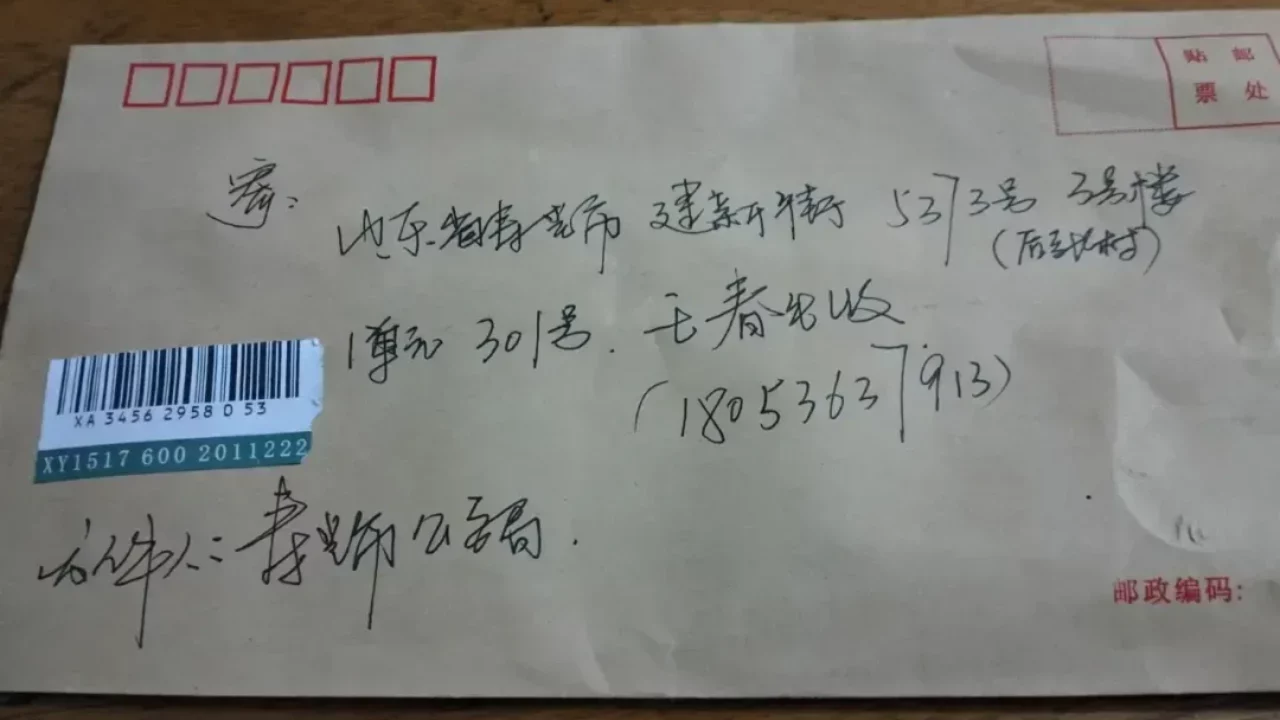 贴邮
票处
寄:
山东省寿光市 建新街 5373号 3号楼
(后

村)
1单元 301号. 王春
收
(18053637913)
XA 3456 2958 0 53
XY1517 600 2011222
寄件人: 寿光市公安局.
邮政编码: